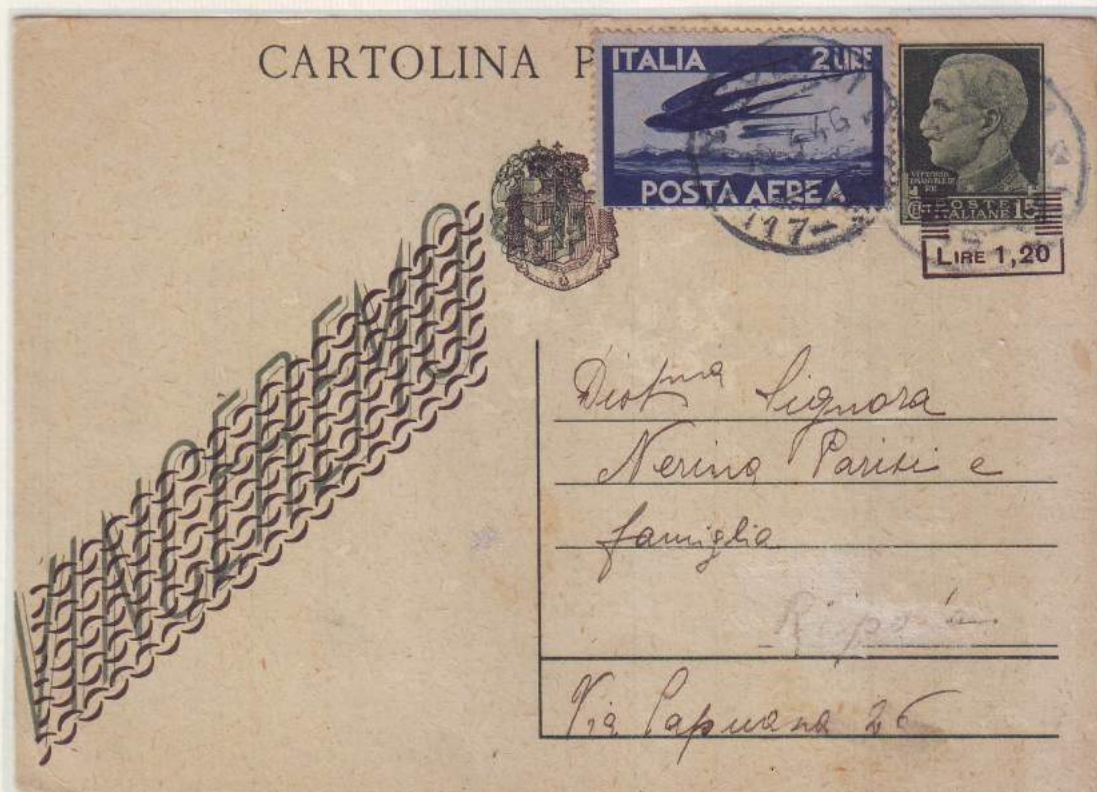 CARTOLINA P
ITALIA 2 LIRE
POSTA AEREA
VITTORIO EMANUELE III RE
POSTE
ITALIANE 15
LIRE 1,20
VINCEREMO
Dist.ma Signora
Nerina Parisi e
famiglia
Via Capuana 26